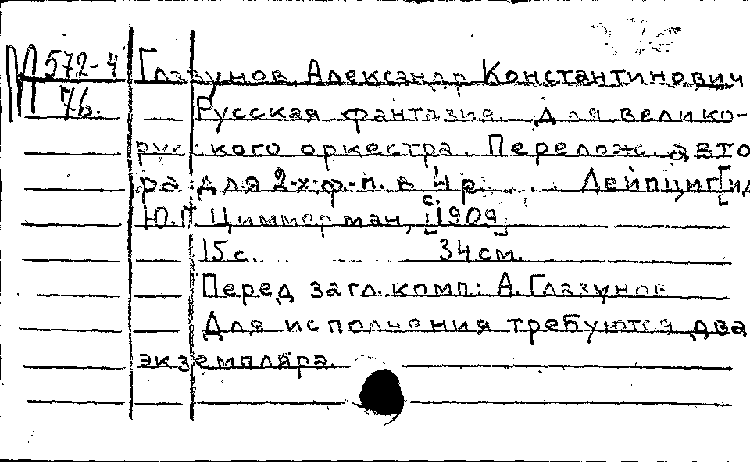 М 572-4 Глазунов, Александр Константинович
76. Русская фантазия. Для велико-
русского оркестра. Перелож. авто
ра для 2-х ф-п. в 4 р. Лейпциг [и
Ю.Г. Циммерман, с. [1909]
15 с. 34 см.
Перед загл. комп.: А. Глазунов
Для исполнения требуются два
экземпляра.